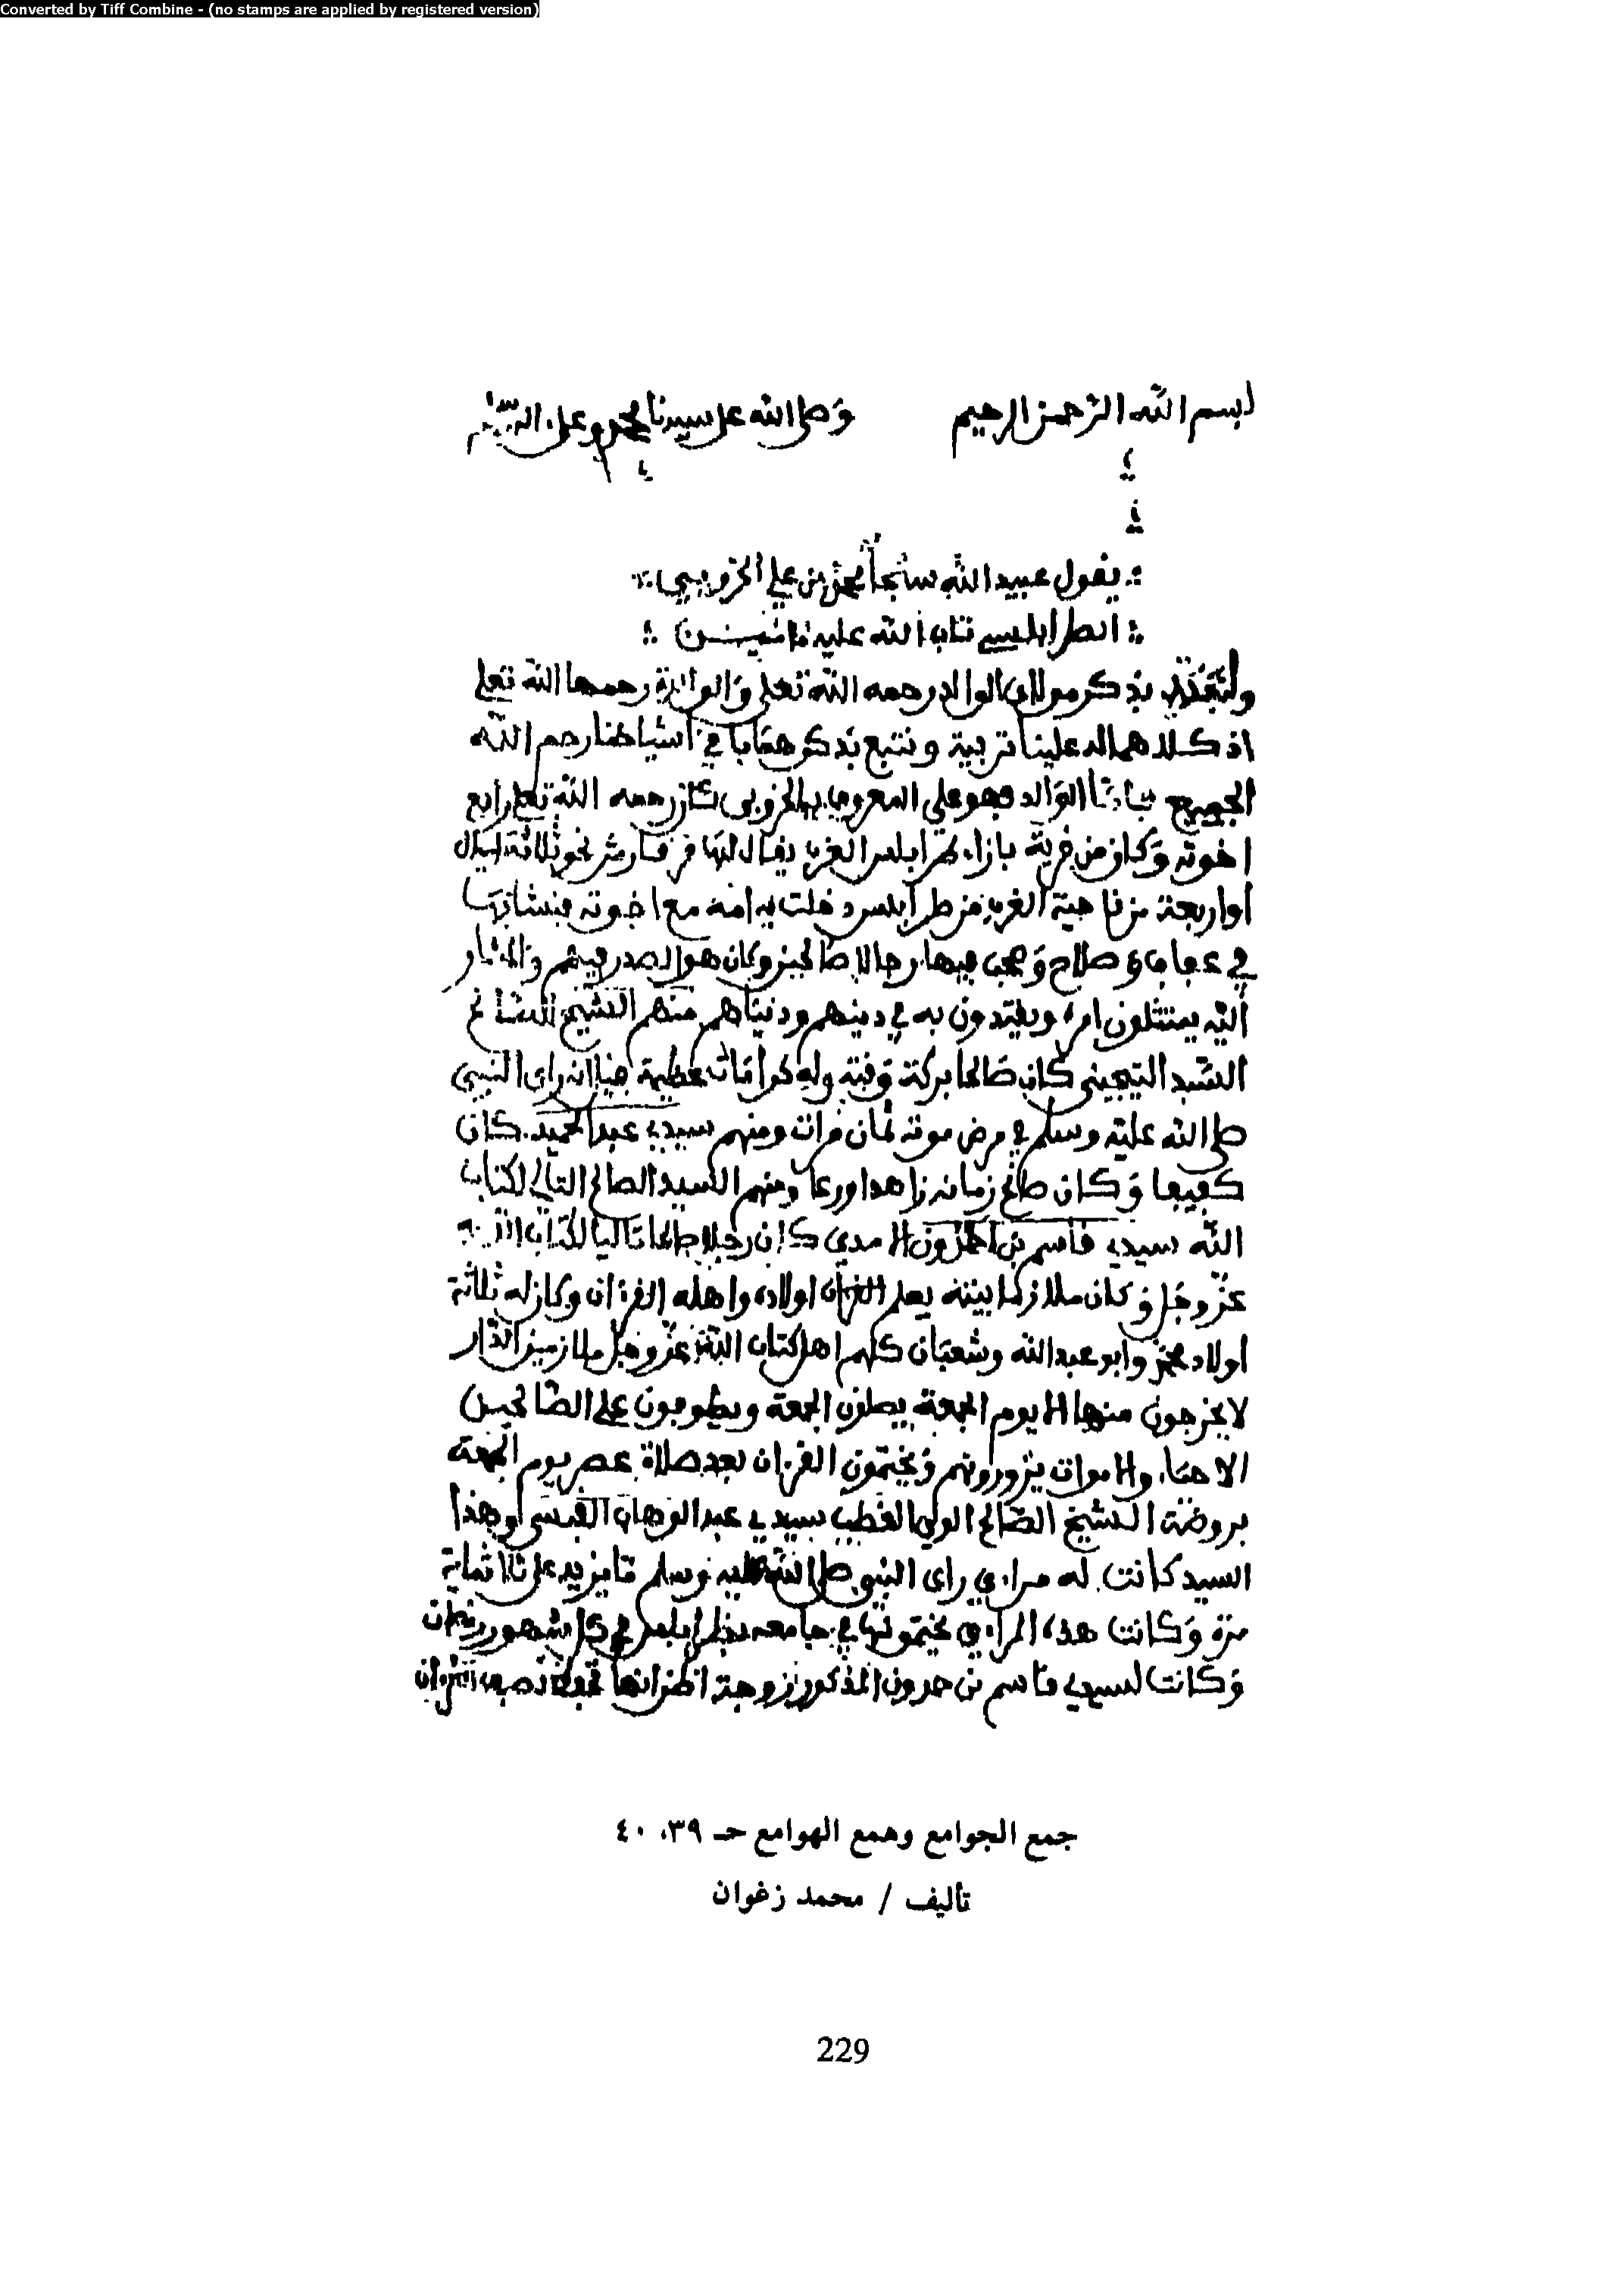 Converted by Tiff Combine - (no stamps are applied by registered version)
بسم الله الرحمن الرحيم وصلى الله على سيدنا محمد وعلى
يقول عبيد الله محمد بن علي الخروبي
الطرابلسي تاب الله عليه
بذكر الوالد رحمه الله تعلى والوالدة رحمها الله تعلى
اذ علينا تربية ونتبع بذكرهما بابا في اشياخنا رحم الله
الجميع الوالد فهو علي المعروف بالخروبي كان رحمه الله تعلى رابع
اخوته وكان من قرية بازاء طرابلس الغرب يقال لها قرقارش نحو ثلاثة اميال
او اربعة من ناحية الغرب من طرابلس دخلت به امه مع اخوته فنشا بها
في عفاف وصلاح وصحب فيها رجالا صالحين وكان هو الصدر فيهم والمشار
اليه يمتثلون امره ويقتدون به في دينهم ودنياهم منهم الشيخ
كان صالحا بركة وقته وله كرامات عظيمة انه راى النبي
صلى الله عليه وسلم في مرض موته ثمان مرات ومنهم سيدي عبد الحميد كان
كفيفا وكان صالح زمانه زاهدا ورعا ومنهم السيد الصالح التالي لكتاب
الله سيدي قاسم بن كان رجلا صالحا تاليا لكتاب الله
عز وجل وكان ملازما بيته يعلم اولاده واهله القرءان وكان له ثلاثة
اولاد محمد وابو عبد الله وشعبان كلهم اهل كتاب الله عز وجل ملازمين الدار
لا يخرجون منها الا يوم الجمعة يصلون الجمعة ويطوفون على الصالحين
الاحياء والاموات يزورونهم ويختمون القرءان بعد صلاة عصر يوم الجمعة
بروضة الشيخ الصالح الولي القطب سيدي عبد الوهاب القيسي وهذا
السيد كانت له مراءي راى النبي صلى الله عليه وسلم ما يزيد على ثلاثماية
مرة وكانت هذه المراءي يختمونها في جامعه بطرابلس في كل شهور رمضان
وكانت لسيدي قاسم بن حمدون المذكور زوجة اظن انها
جمع الجوامع وهمع الهوامع حـ ٣٩، ٤٠
تأليف / محمد زغوان
229